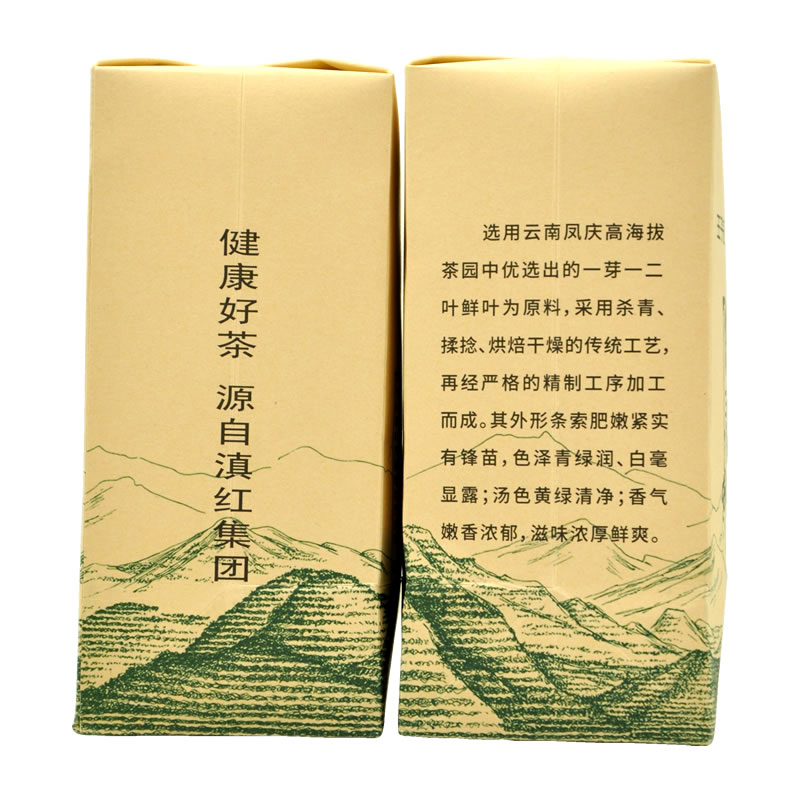 健康好茶 源自滇红集团
选用云南凤庆高海拔
茶园中优选出的一芽一二
叶鲜叶为原料，采用杀青、
揉捻、烘焙干燥的传统工艺，
再经严格的精制工序加工
而成。其外形条索肥嫩紧实
有锋苗，色泽青绿润、白毫
显露；汤色黄绿清净；香气
嫩香浓郁，滋味浓厚鲜爽。